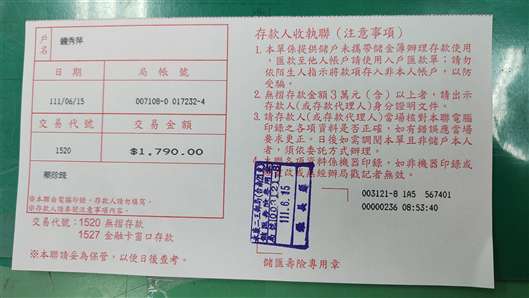 戶名
鍾秀萍
日期
局帳號
111/06/15
007108-0 017232-4
交易代號
交易金額
1520
$1,790.00
※本聯由電腦印錄,存款人請勿填寫。
※存款人請參閱注意事項內容。
交易代號:1520 無摺存款
1527 金融卡窗口存款
※本聯請妥為保管,以便日後查考。
存款人收執聯(注意事項)
1. 本單係提供儲戶未攜帶儲金簿辦理存款使用
,匯款至他人帳戶請使用入戶匯款單;請勿
依陌生人指示將款項存入非本人帳戶,以防
受騙。
2. 無摺存款金額3萬元(含)以上者,請出示
存款人(或存款代理人)身分證明文件。
3. 請存款人(或存款代理人)當場核對本聯電腦
印錄之各項資料是否正確,如有錯誤應當場
要求更正。日後如需調閱本單且非儲戶本人
者,須依委託方式辦理。
4. 本聯各項資料係機器印錄,如非機器印錄或
更改或無經辦員戳記者無效。
003121-8 1A5 567401
00000236 08:53:40
111.6.15
儲匯壽險專用章